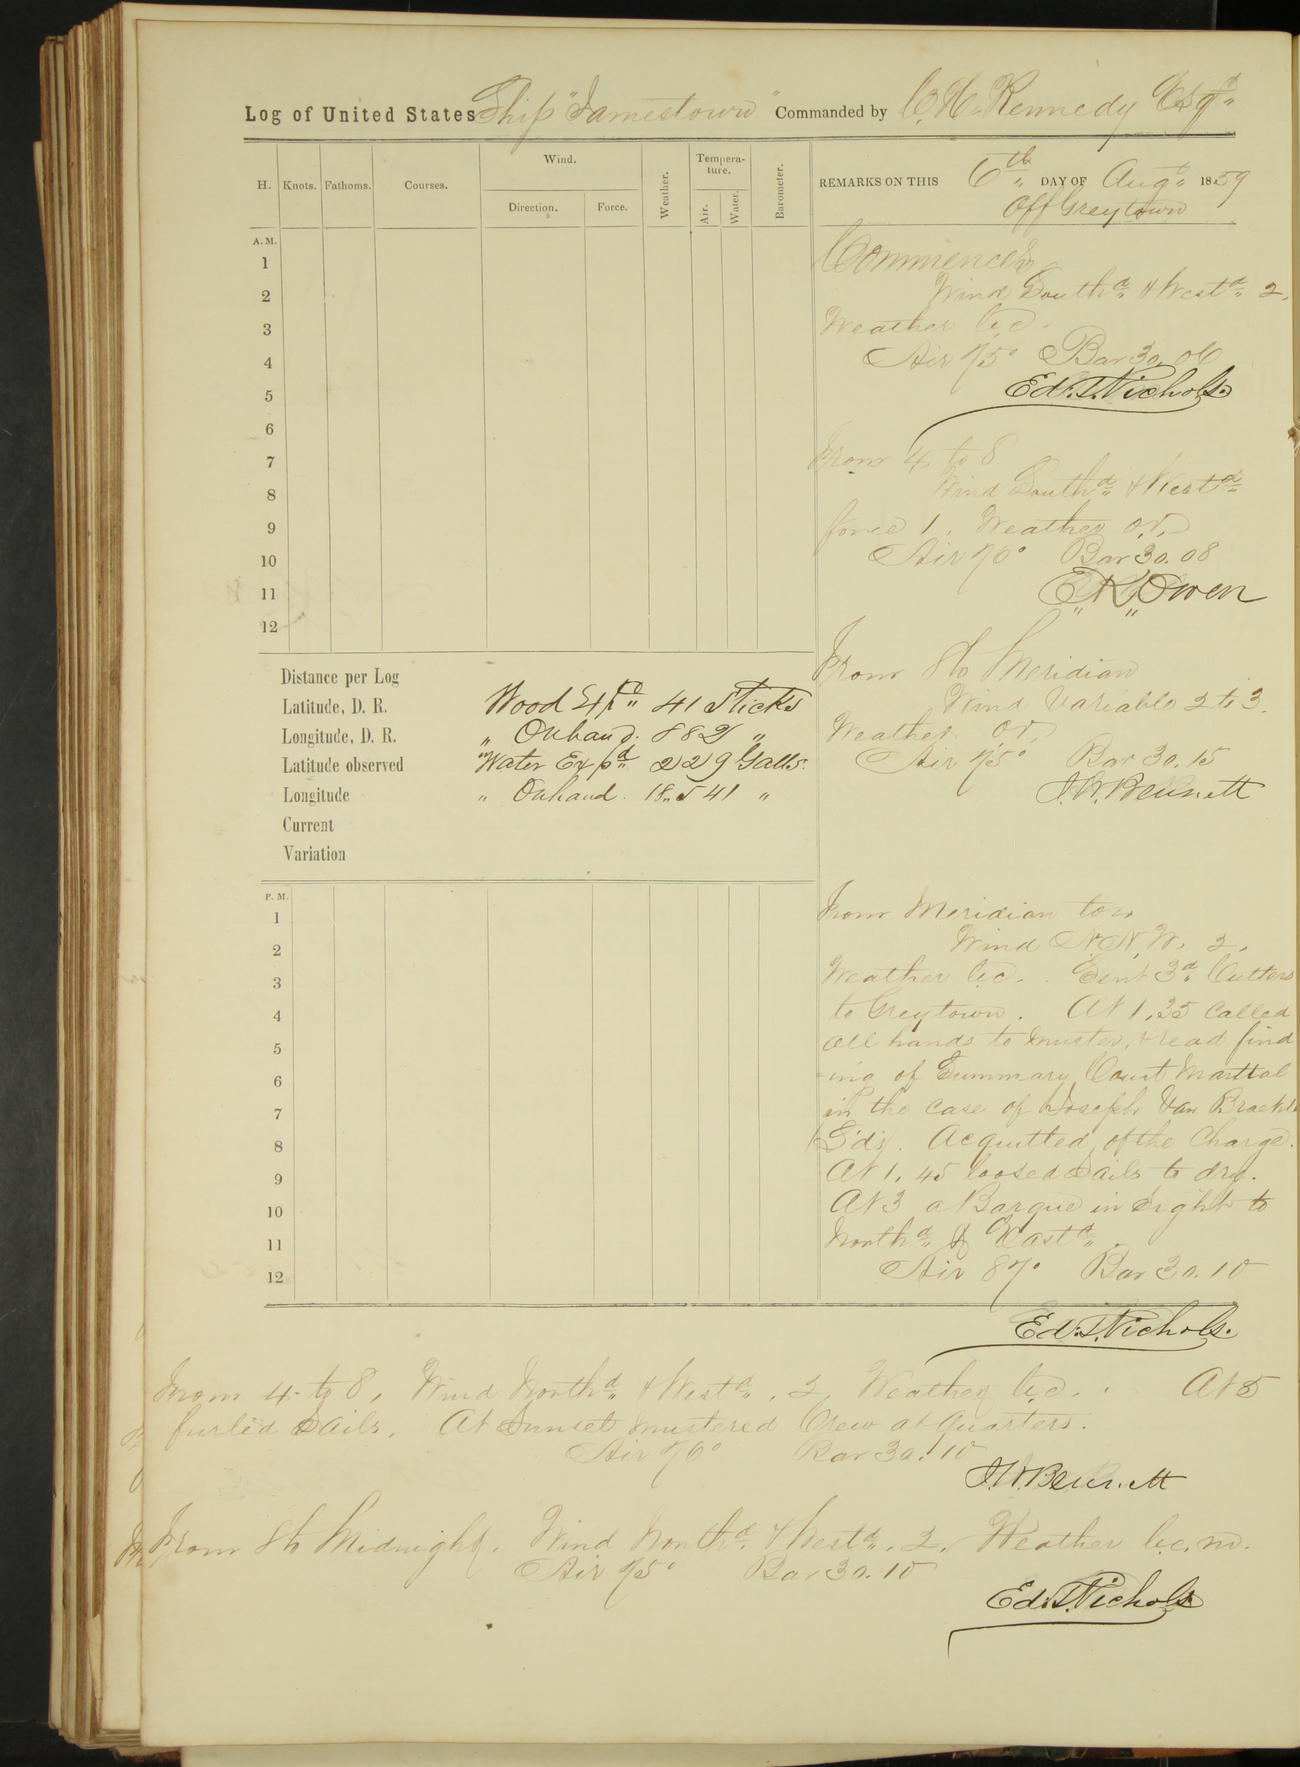 Log of United States Ship "Jamestown" Commanded by C. H. Kennedy Esqr
H. Knots. Fathoms. Courses. Wind. Direction. Force. Weather. Tempera-ture. Air. Water. Barometer.
REMARKS ON THIS 6th DAY OF Augt 1859
Off Greytown
A. M.
1
2
3
4
5
6
7
8
9
10
11
12
Commences
Wind Southd & Westd 2.
Weather b.c.
Air 75° Bar 30.06
Ed. T. Nichols.
From 4 to 8
Wind Southd & Westd
force 1. Weather o.r.
Air 76° Bar 30.08
E. K. Owen
From 8 to Meridian
Wind Variable 2 to 3.
Weather or.
Air 75° Bar 30.15
J. W. Bennett
Distance per Log
Latitude, D. R.
Longitude, D. R.
Latitude observed
Longitude
Current
Variation
Wood 41 Sticks
" Onhand. 882 "
Water Expd 229 Galls.
" Onhand. 18.541 "
P. M.
1
2
3
4
5
6
7
8
9
10
11
12
From Meridian to 4
Wind N.N.W. 2.
Weather b.c. Sent 3d Cutters
to Greytown. At 1.35 Called
all hands to muster, & read find
-ing of Summary Court Martial
in the case of Joseph Van Brackle
(S'd's). Acquitted of the Charge.
At 1.45 loosed Sails to dry.
At 3 a Barque in Sight to
Northd & Eastd.
Air 87° Bar 30.10
Ed. T. Nichols.
From 4 to 8, Wind Northd & Westd. 2, Weather b.c. At 5
furled Sails. At Sunset mustered Crew at quarters.
Air 76° Bar 30.10
J. W. Bennett
From 8 to Midnight. Wind Northd & Westd. 2. Weather b.c.m.
Air 75° Bar 30.10
Ed. T. Nichols